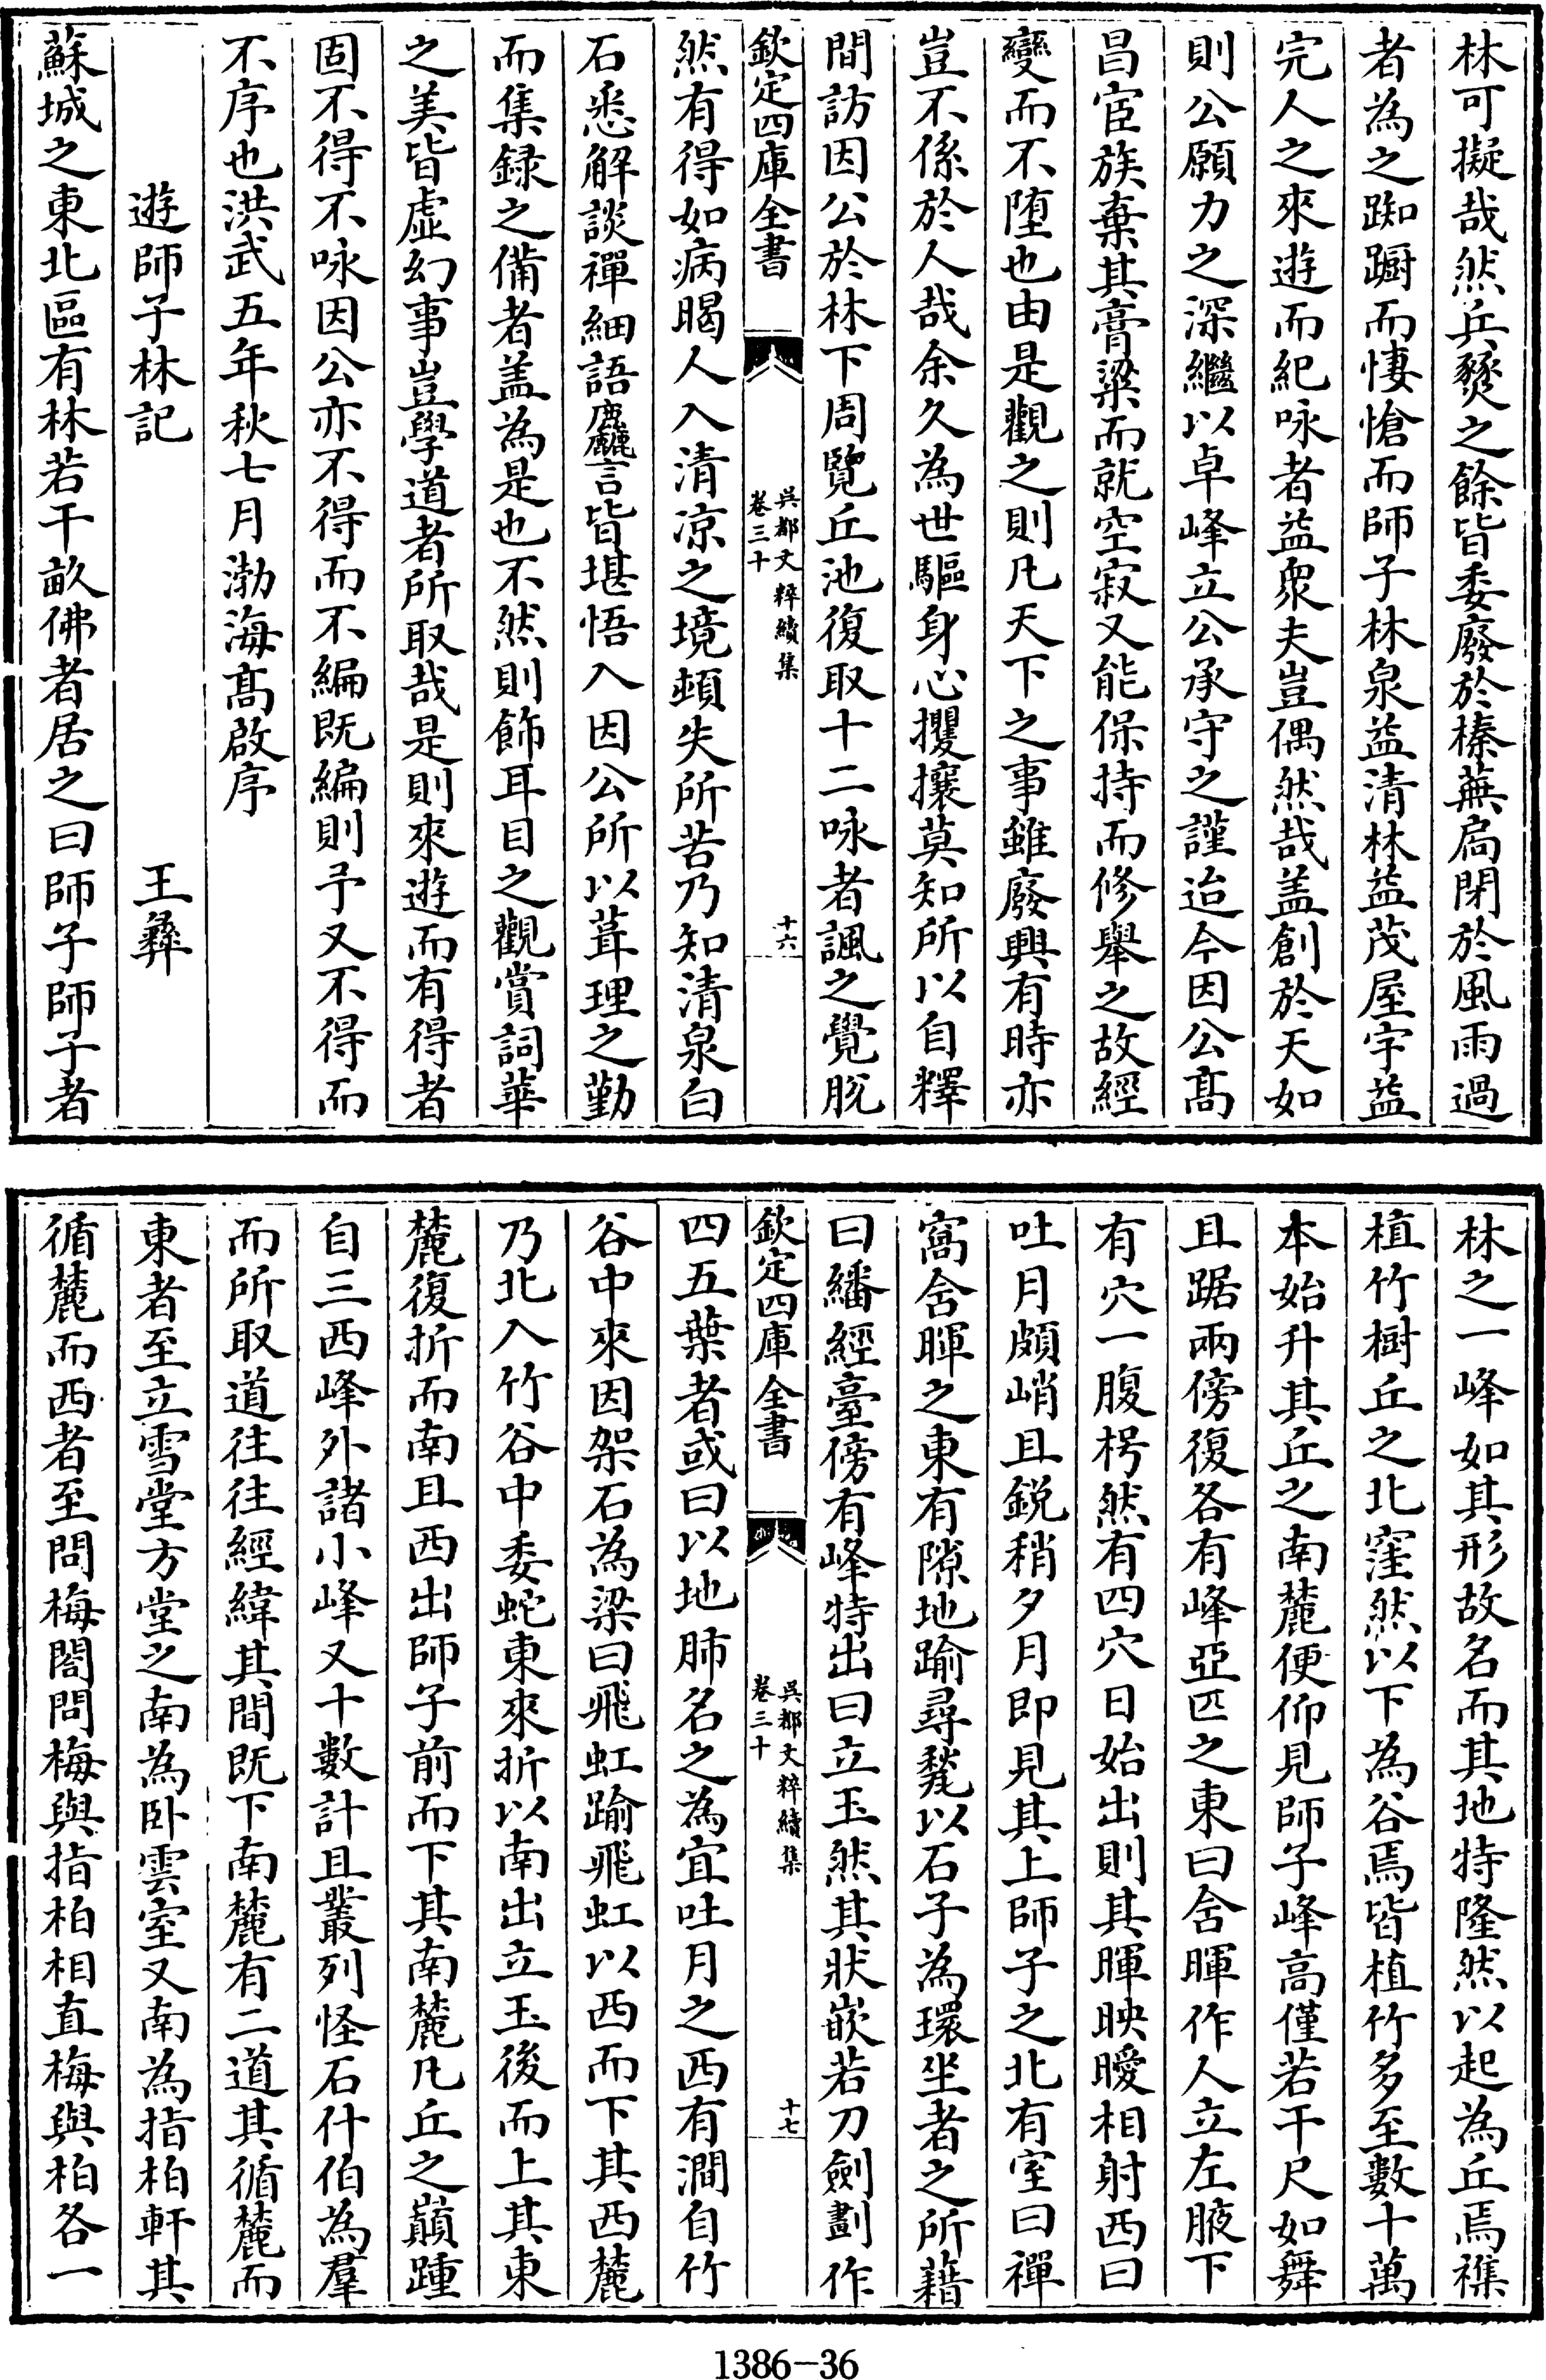 林可擬哉然兵燹之餘皆委廢於榛蕪扃閉於風雨過
者為之踟蹰而悽愴而師子林泉益清林益茂屋宇益
完人之來遊而紀咏者益衆夫豈偶然哉盖創於天如
則公願力之深繼以卓峰立公承守之謹迨今因公髙
昌宦族棄其膏粱而就空寂又能保持而修舉之故經
變而不堕也由是觀之則凡天下之事雖廢興有時亦
豈不係於人哉余久為世驅身心攖攘莫知所以自釋
間訪因公於林下周覽丘池復取十二咏者諷之覺脱
欽定四庫全書
吳都文粹續集
卷三十
十六
然有得如病暍人入清凉之境頓失所苦乃知清泉白
石悉解談禪細語麤言皆堪悟入因公所以葺理之勤
而集録之備者盖為是也不然則飾耳目之觀賞詞華
之美皆虚幻事豈學道者所取哉是則來遊而有得者
固不得不咏因公亦不得而不編既編則予又不得而
不序也洪武五年秋七月渤海髙啟序
遊師子林記
王彛
蘇城之東北區有林若干畝佛者居之曰師子師子者
林之一峰如其形故名而其地特隆然以起為丘焉襍
植竹樹丘之北窪然以下為谷焉皆植竹多至數十萬
本始升其丘之南麓便仰見師子峰高僅若干尺如舞
且踞兩傍復各有峰亞匹之東曰含暉作人立左腋下
有穴一腹枵然有四穴日始出則其暉映曖相射西曰
吐月頗峭且鋭稍夕月即見其上師子之北有室曰禪
窩含暉之東有隙地踰尋甃以石子為環坐者之所藉
曰繙經臺傍有峰特出曰立玉然其狀嵌若刀劍劃作
欽定四庫全書
吳都文粹續集
卷三十
十七
四五葉者或曰以地肺名之為宜吐月之西有澗自竹
谷中來因架石為梁曰飛虹踰飛虹以西而下其西麓
乃北入竹谷中委蛇東來折以南出立玉後而上其東
麓復折而南且西出師子前而下其南麓凡丘之巔踵
自三西峰外諸小峰又十數計且叢列怪石什伯為羣
而所取道往往經緯其間既下南麓有二道其循麓而
東者至立雪堂方堂之南為卧雲室又南為指柏軒其
循麓而西者至問梅閣問梅與指柏相直梅與柏各一
1386-36